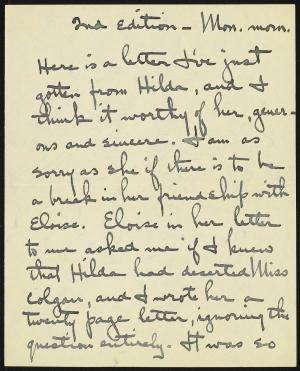 2nd edition - Mon. morn.
Here is a letter I've just
gotten from Hilda, and I
think it worthy of her, gener-
ous and sincere. I am as
sorry as she if there is to be
a break in her friendship with
Eloise. Eloise in her letter
to me asked me if I knew
that Hilda had deserted Miss
Colgan, and I wrote her a
twenty page letter, ignoring the
question entirely. It was so